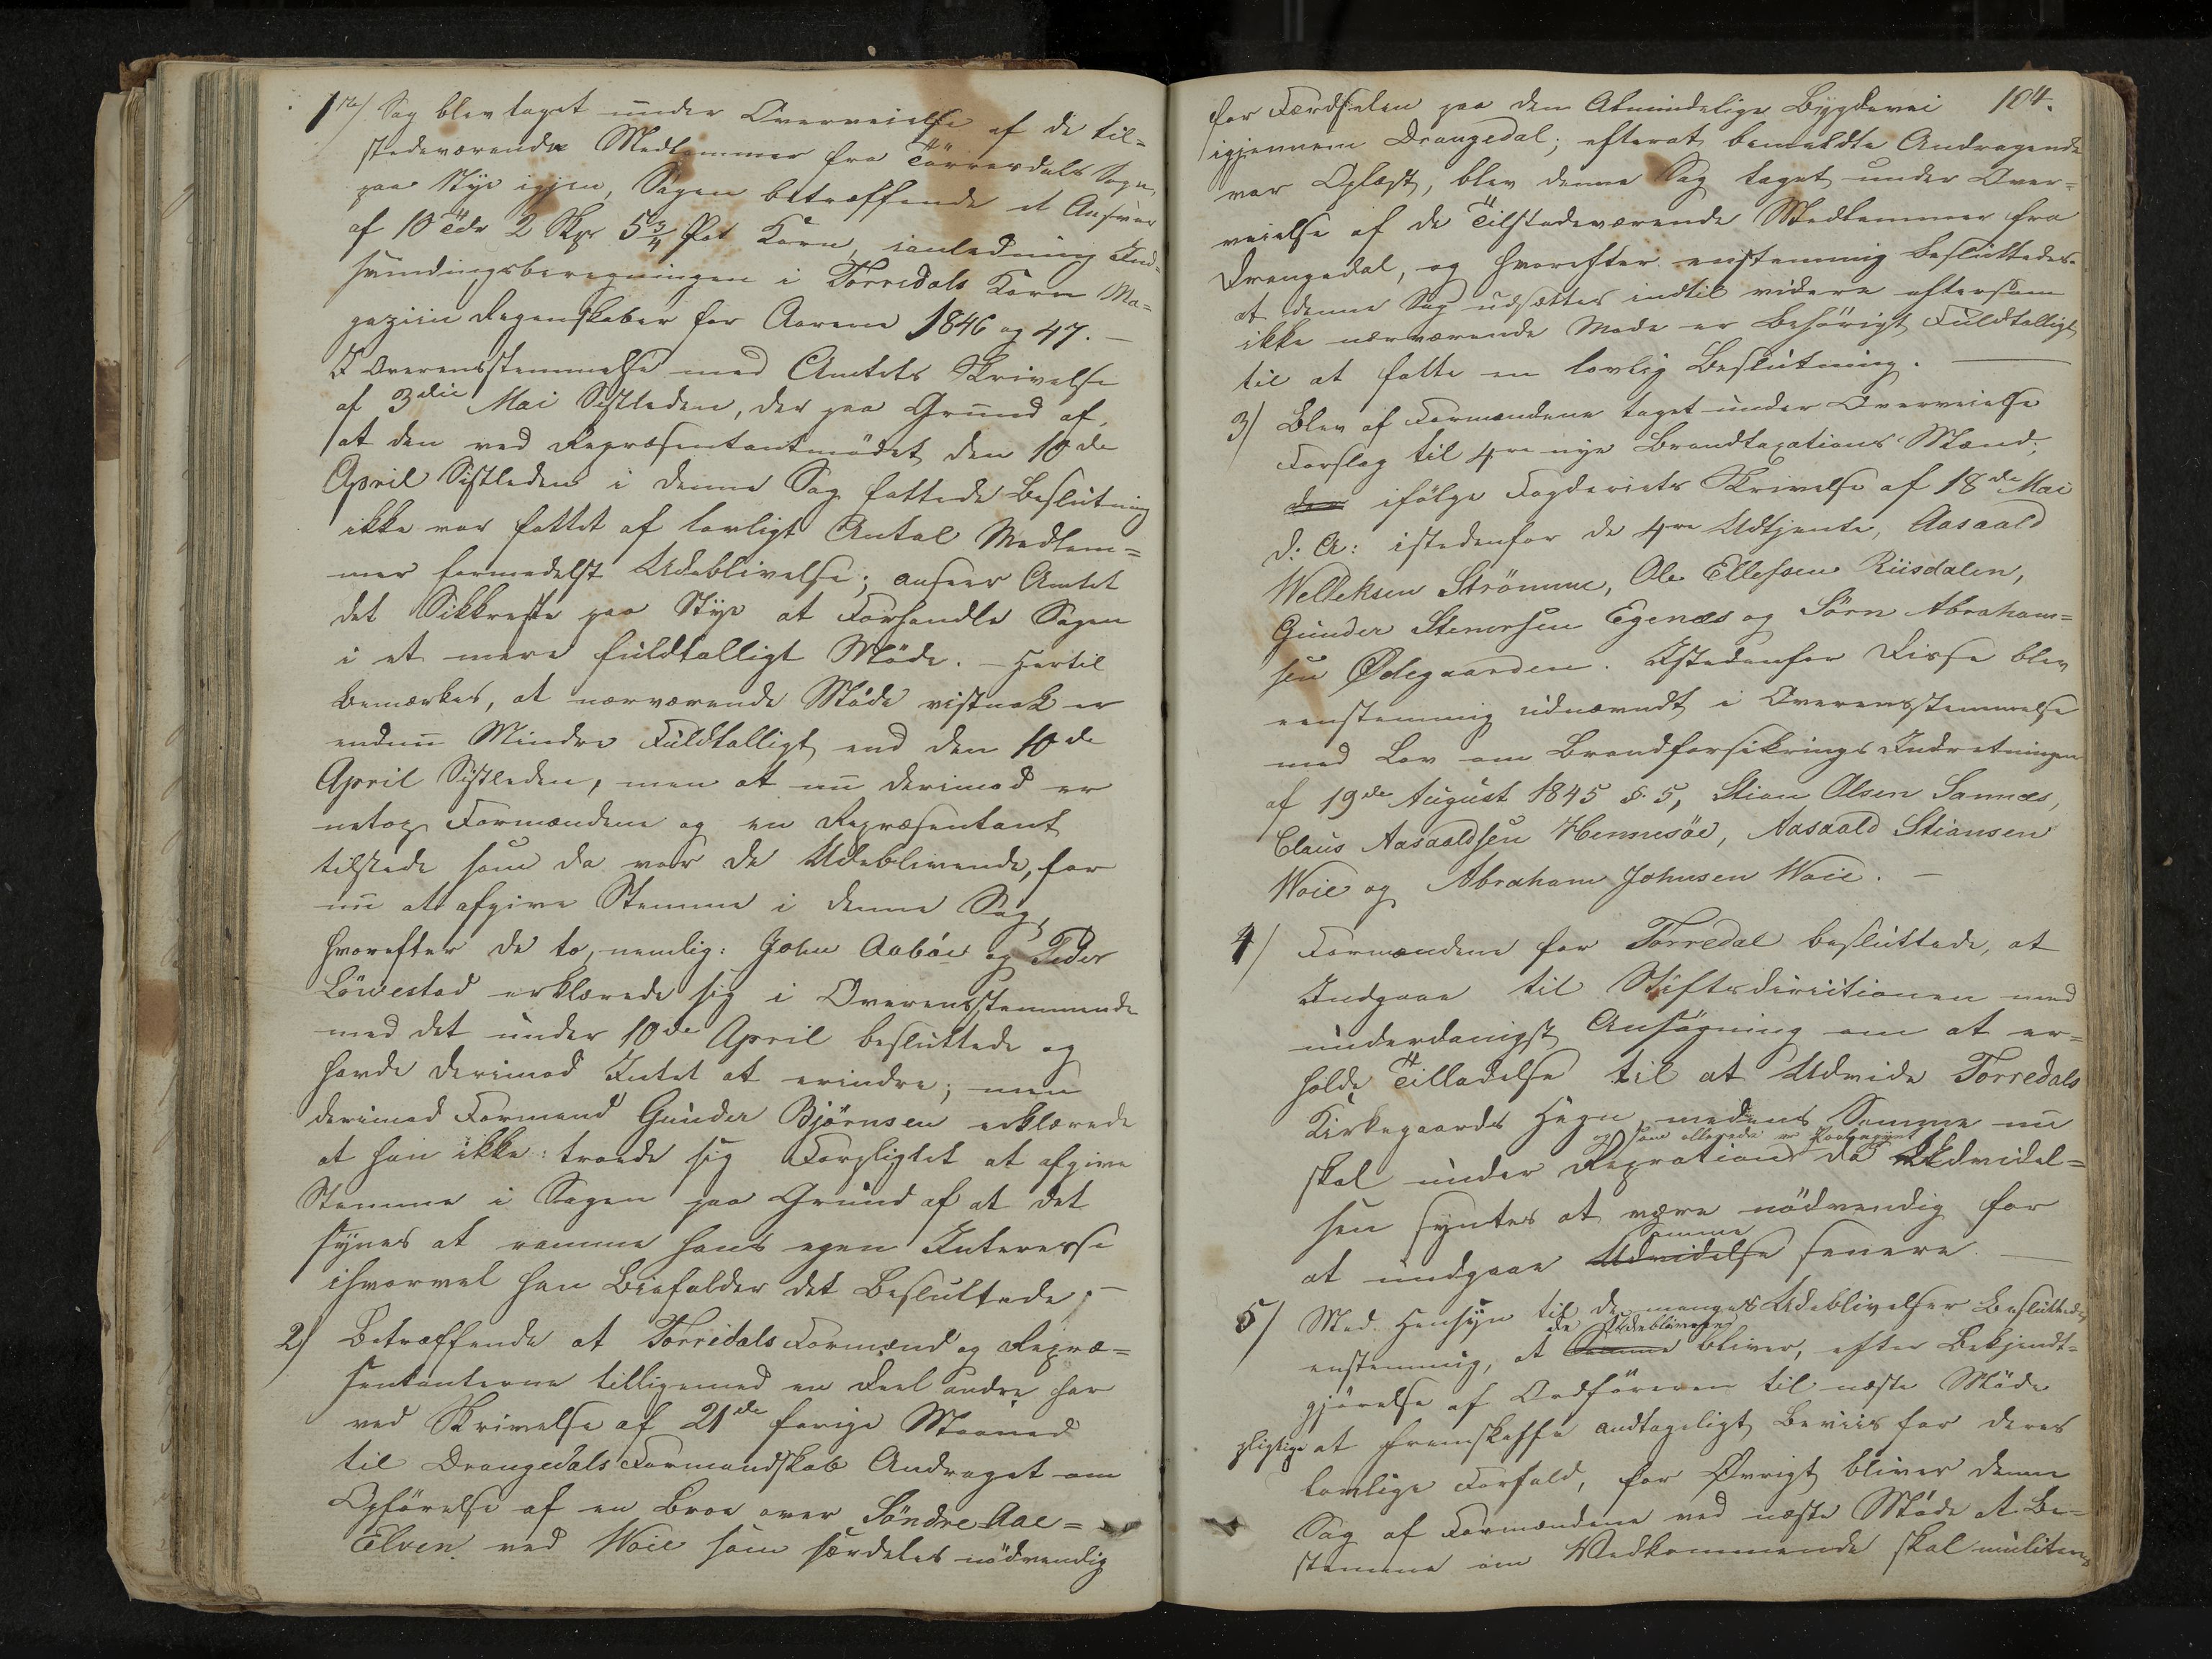 1ste/ Sag blev taget under Overveielse af de til=
stedeværende Medlemmer fra Törresdals Sogn,
paa Nye igjen, Sagen betræffende et Ansvar
af 10 Tdr 2 Skp 5¾ Pot Korn, ianledning Ind=
hændingsberegningen i Torridals Korn Ma=
gaziin Regenskaber for Aarene 1846 og 47. —
I Overensstemmelse med Amtets Skrivelse
af 3die Mai Sistleden, der paa Grund af,
at den ved Repræsentantmödet den 10de
April Sistleden i denne Sag fattede Beslutning
ikke var fattet af lovligt Antal Medlem=
mer formedelst Udeblivelse; anseer Amtet
det Sikkreste paa Nye at Forhandle Sagen
i et mere fuldtalligt Möde. — Hertil
Bemærkes, at nærværende Möde vistnok er
endnu Mindre Fuldtalligt end den 10de
April Sistleden, men at nu derimod er
netop Formændene og en Repræsentant
tilstede som da var de Udeblivende, for
nu at afgive Stemme i denne Sag,
hvorefter de to, nemlig: John Aaböe og Peder
Löwestad erklærede sig i Overensstemmende
med det under 10de April besluttede og
havde derimod Intet at erindre; men
derimod Formand Gunder Björnsen erklærede
at han ikke troede sig Forpligtet at afgive
Stemme i Sagen paa Grund af at det
synes at ramme hans egen Interesse
ihvorvel han Biefalder det Besluttede. —
2/ Betræffende at Torridals Formænd og Repræ=
sentanterne tilligemed en Deel andre har
ved Skrivelse af 21de forige Maaned
til Drangedals Formandskab Andraget om
Opförelse af en Broe over Söndre Aae=
Elven ved Woie som særdeles nödvendig
104.
for Færdselen paa den Almindelige Bygdevei
igjennem Drangedal; efterat bemeldte Andragende
var Oplæst, blev denne Sag taget under Over=
veielse af de Tilstedeværende Medlemmer fra
Drangedal, og hvorefter enstemmig besluttedes
at denne Sag udsættes indtil videre eftersom
ikke nærværende Möde er Behörigt Fuldtalligt
til at fatte en lovlig Beslutning. —
3/ Blev af Formændene taget under Overveielse
Forslag til 4re nye Brandtaxations Mænd;
den ifölge Fogderiets Skrivelse af 18de Mai
d: A: istedenfor de 4re Udtjente, Aasaald
Welleksen Strömme, Ole Ellefsen Riisdalen,
Gunder Stenersen Egenæs og Sörn Abraham=
sen Ødegaarden. Istedenfor Disse blev
eenstemmig udnævndt i Overensstemmelse
med Lov om Brandforsikrings Indretningen
af 19de August 1845 §. 5, Stian Olsen Sannæs,
Claus Aasaaldsen Hennesöe, Aasaald Stiansen
Woie og Abraham Johnsen Woie. —
4/ Formændene for Torredal besluttede, at
Indgaae til Stiftsdirectionen med
underdanigst Ansögning om at er=
holde Tilladelse til at Udvide Torredals
Kirkegaards Hegn, medens Samme nu
og som allerede er Paabegynt
skal under Repration da Udvidel=
sen syntes at være nödvendig for
Samme
at undgaae Udvidelse senere. —
5/ Med Hensyn til de manges Udeblivelser besluttedes
de Udeblivene
enstemmig, at Samme bliver, efter Bekjendt=
gjörelse af Ordföreren til næste Möde
pligtige at fremskaffe antageligt Beviis for deres
lovlige Forfald, for Øvrigt bliver denne
Sag af Formændene ved næste Möde at Be=
stemme om Vedkommende skal mulkteres